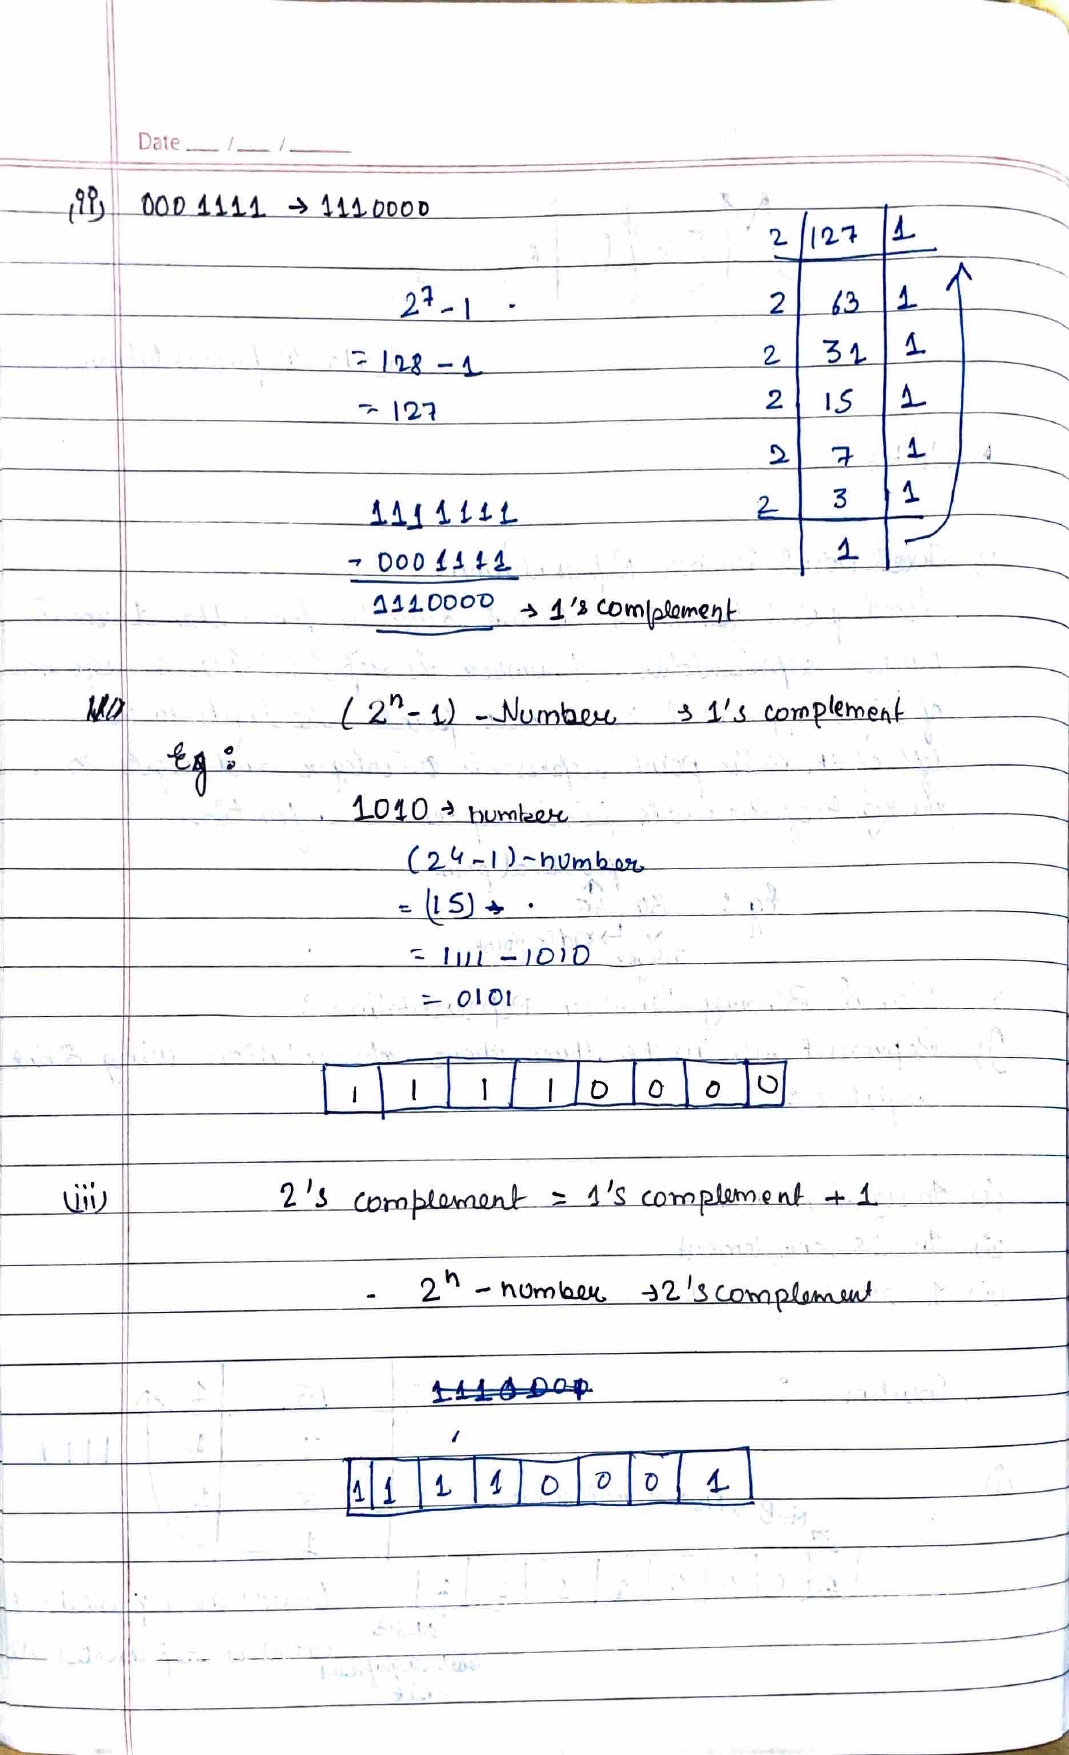 Date __ /__ /____
(ii) 000 1111 → 1110000
2⁷ - 1
= 128 - 1
= 127
2 | 127 | 1
2 | 63 | 1
2 | 31 | 1
2 | 15 | 1
2 | 7 | 1
2 | 3 | 1
1
111 1111
- 000 1111
1110000 → 1's complement
(2ⁿ - 1) - Number → 1's complement
Eg :
1010 → number
(24 - 1) - number
= (15) → .
= 1111 - 1010
= 0101
1 | 1 | 1 | 1 | 0 | 0 | 0 | 0
(iii) 2's complement = 1's complement + 1
- 2ⁿ - number → 2's complement
1 | 1 | 1 | 1 | 0 | 0 | 0 | 1